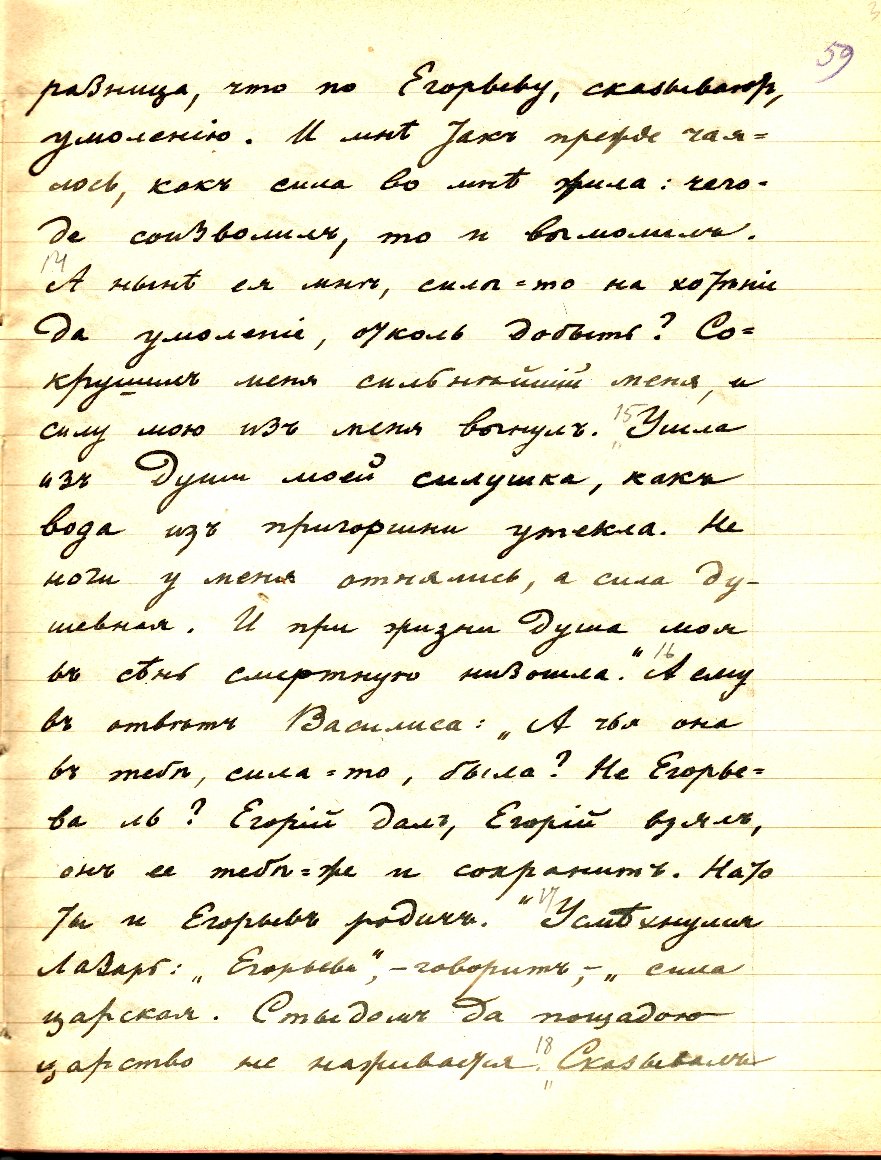 59
разница, что по Егорьеву, сказываютъ,
умоленію. И мнѣ такъ прежде чая=
лось, какъ сила во мнѣ жила: чего-
де соизволилъ, то и вымолилъ.
14
А нынѣ ея мнѣ, силы=то на хотѣніе
да умоленіе, отколь добыть? Со=
крушилъ меня сильнѣйшій меня, и
силу мою изъ меня вынулъ. 15 „Ушла
изъ души моей силушка, какъ
вода изъ пригоршни утекла. Не
ноги у меня отнялись, а сила ду-
шевная. И при жизни душа моя
въ сѣнь смертную низошла.“ 16 А ему
въ отвѣтъ Василиса: „А чья она
въ тебѣ, сила=то, была? Не Егорье=
ва ль? Егорій далъ, Егорій взялъ,
онъ ее тебѣ=же и сохранитъ. На то
ты и Егорьевъ родичъ.“ 17 Усмѣхнулся
Лазарь: „Егорьева“, – говоритъ, – „сила
царская. Стыдомъ да пощадою
царство не наживается. 18 „Сказывалъ